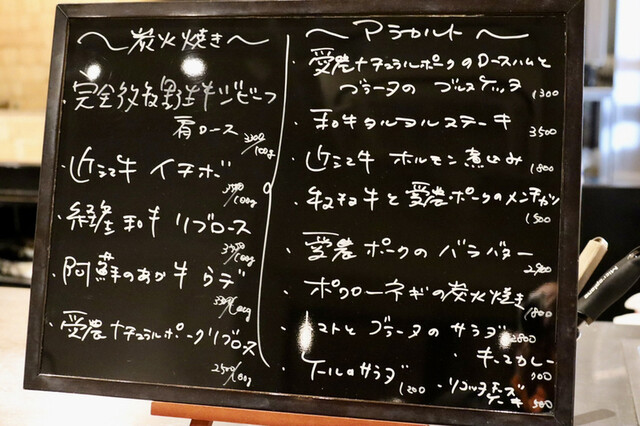 〜炭火焼き〜
・完全放牧野生牛ジビーフ
肩ロース
/100g
・近江牛 イチボ
/100g
・経産和牛 リブロース
/100g
・阿蘇のあか牛 らむ
/100g
・愛農ナチュラルポークリブロース
2500/100g
〜アラカルト〜
・愛農ナチュラルポークのロースハムと
ブラータの ブルスケッタ
1300
・和牛タルタルステーキ
3500
・近江牛 ホルモン煮込み
1800
牛と愛農ポークのメンチカツ
1500
・愛農ポークの バラバター
・ポワローネギの炭火焼き
1800
・トマトと ブラータの サラダ
2800
・キーマカレー
900
・ケールのサラダ
1200
・リコッタチーズケーキ
500